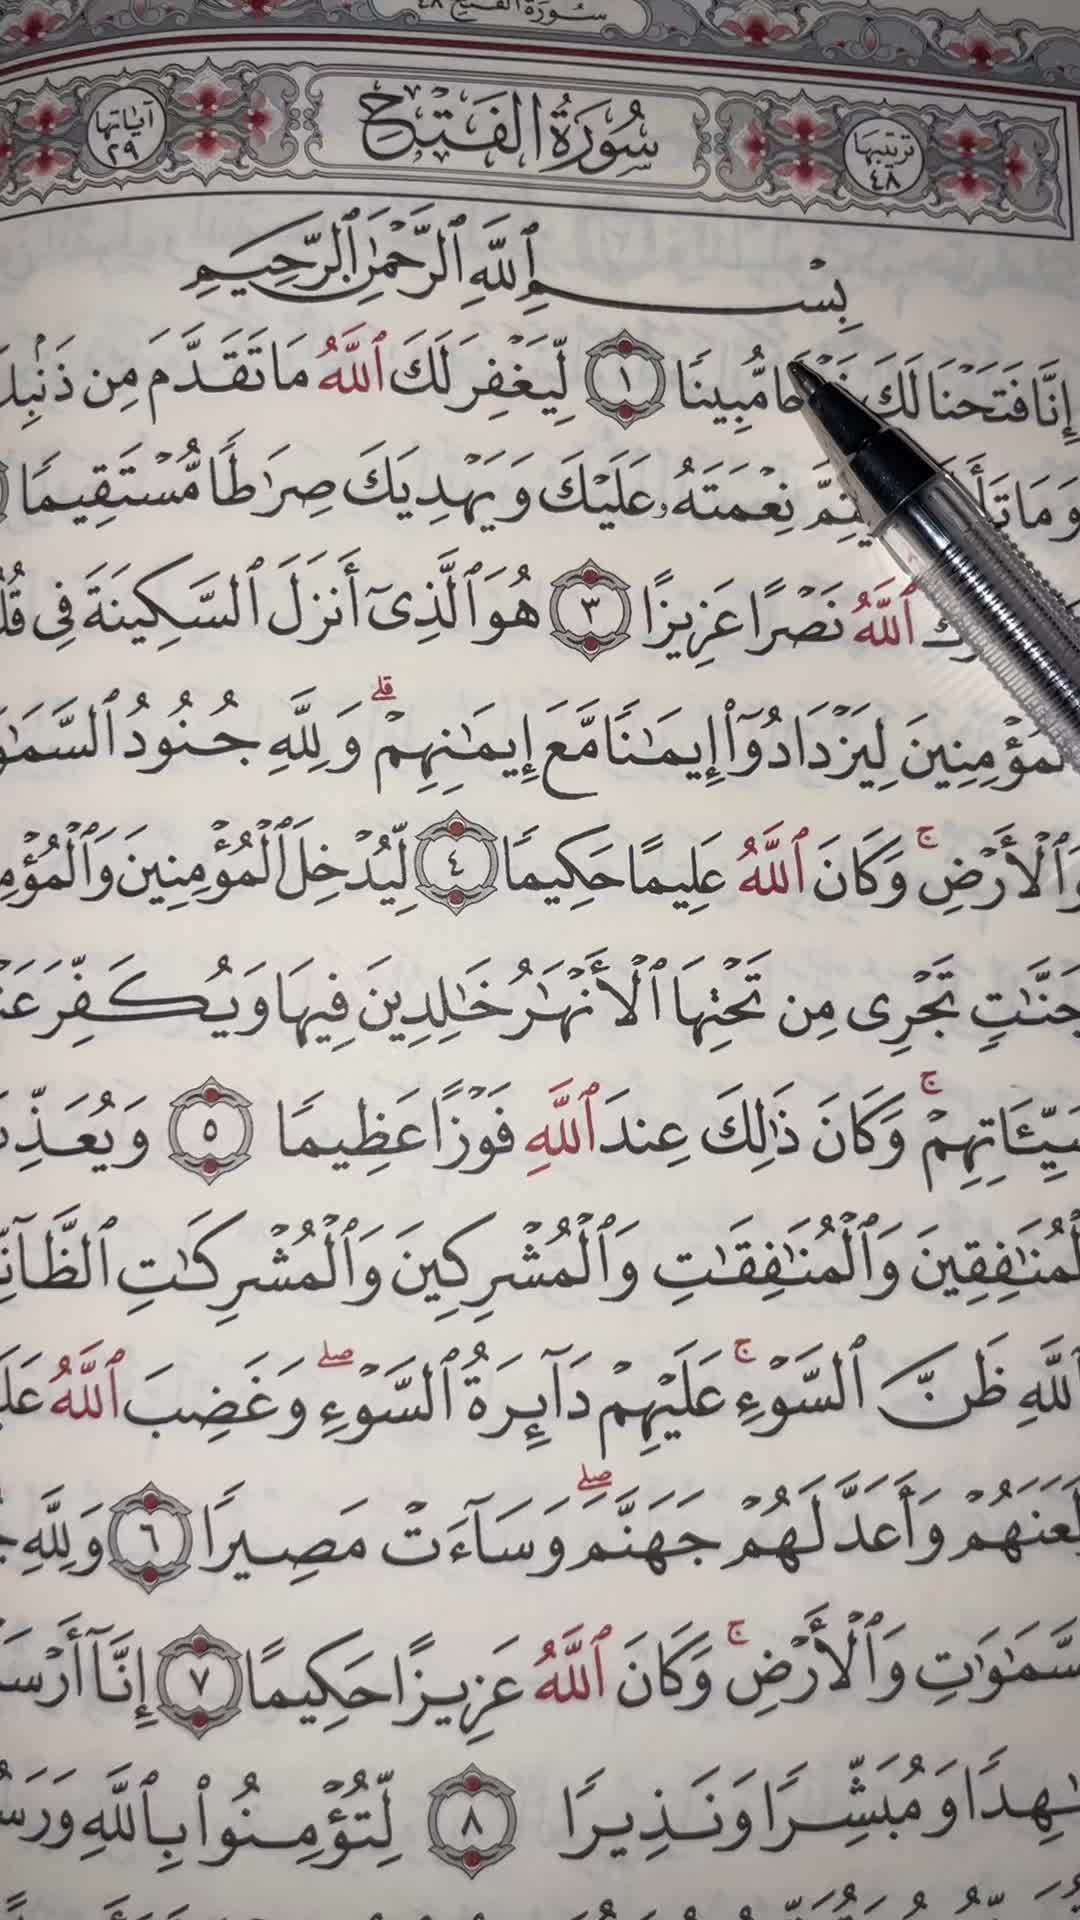 سُورَةُ الفَتۡحِ ٤٨
تَرتيبُهَا ٤٨ سُورَةُ الفَتۡحِ آيَاتُهَا ٢٩
بِسۡمِ ٱللَّهِ ٱلرَّحۡمَٰنِ ٱلرَّحِيمِ
إِنَّا فَتَحۡنَا لَكَ مُّبِينٗا ١ لِّيَغۡفِرَ لَكَ ٱللَّهُ مَا تَقَدَّمَ مِن
نِعۡمَتَهُۥ عَلَيۡكَ وَيَهۡدِيَكَ صِرَٰطٗا مُّسۡتَقِيمٗا
ٱللَّهُ نَصۡرًا عَزِيزًا ٣ هُوَ ٱلَّذِيٓ أَنزَلَ ٱلسَّكِينَةَ فِي
لِيَزۡدَادُوٓاْ إِيمَٰنٗا مَّعَ إِيمَٰنِهِمۡۗ وَلِلَّهِ جُنُودُ
وَٱلۡأَرۡضِۚ وَكَانَ ٱللَّهُ عَلِيمًا حَكِيمٗا ٤ لِّيُدۡخِلَ ٱلۡمُؤۡمِنِينَ
جَنَّٰتٖ تَجۡرِي مِن تَحۡتِهَا ٱلۡأَنۡهَٰرُ خَٰلِدِينَ فِيهَا وَيُكَفِّرَ
سَيِّـَٔاتِهِمۡۚ وَكَانَ ذَٰلِكَ عِندَ ٱللَّهِ فَوۡزًا عَظِيمٗا ٥
ٱلۡمُنَٰفِقِينَ وَٱلۡمُنَٰفِقَٰتِ وَٱلۡمُشۡرِكِينَ وَٱلۡمُشۡرِكَٰتِ
ٱللَّهِ ظَنَّ ٱلسَّوۡءِۚ عَلَيۡهِمۡ دَآئِرَةُ ٱلسَّوۡءِۖ وَغَضِبَ ٱللَّهُ
وَأَعَدَّ لَهُمۡ جَهَنَّمَۖ وَسَآءَتۡ مَصِيرٗا ٦ وَلِلَّهِ
وَٱلۡأَرۡضِۚ وَكَانَ ٱللَّهُ عَزِيزًا حَكِيمًا ٧ إِنَّآ
وَمُبَشِّرٗا وَنَذِيرٗا ٨ لِّتُؤۡمِنُواْ بِٱللَّهِ